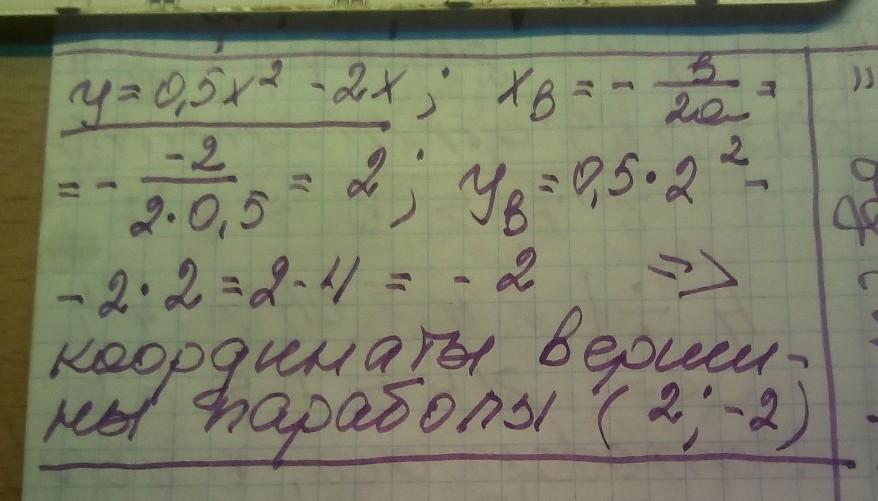 y=0,5x² -2x; xв = - в/2a =
= - -2/2·0,5 = 2; yв = 0,5·2² -
- 2·2 = 2-4 = -2 =>
координаты верши-
ны параболы (2; -2)